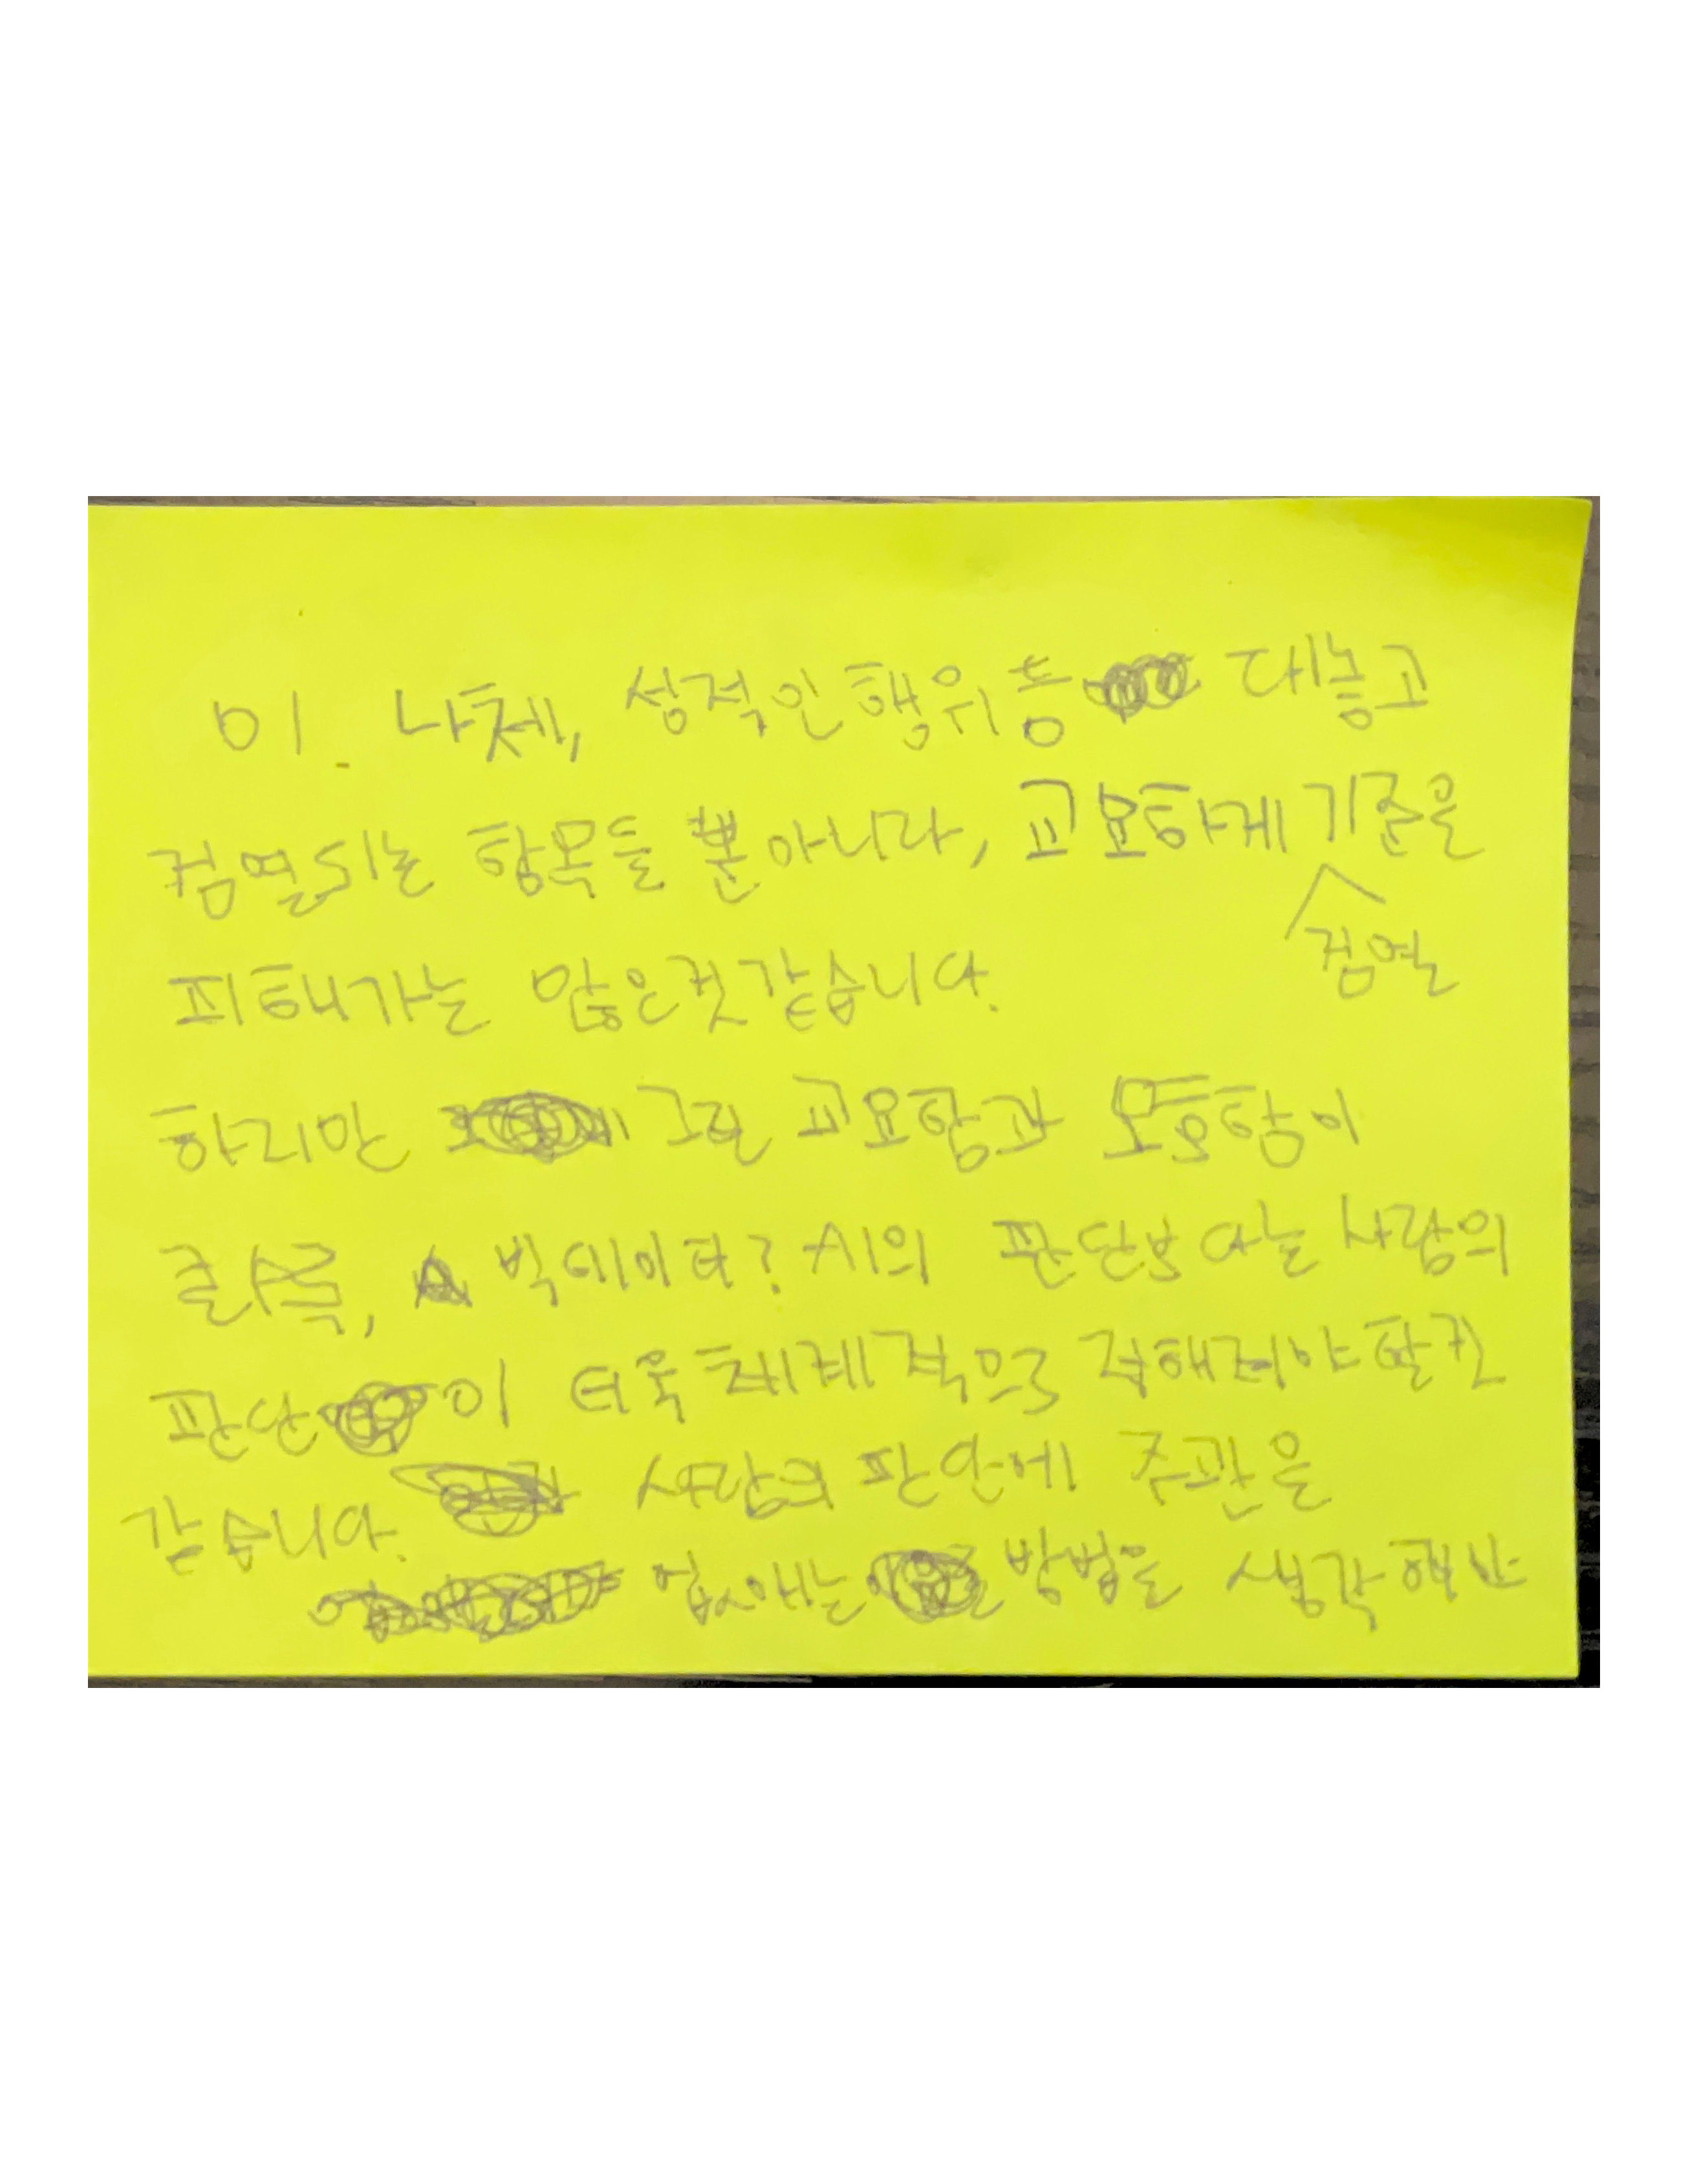 01. 나체, 성적인 행위 등 대놓고
검열되는 항목들 뿐아니라, 교묘하게 검열 기준을
피해가는 많은것 같습니다.
하지만 그런 교묘함과 모호함이
클수록, 빅데이터? AI의 판단보다는 사람의
판단이 더욱 체계적으로 정해져야 할것
같습니다. 사람의 판단에 주관을
없애는 방법을 생각해봐